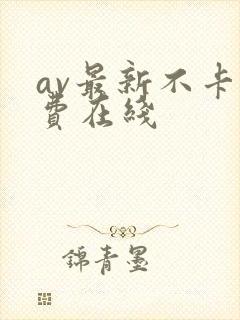 av最新不卡
費在綫
錦青墨